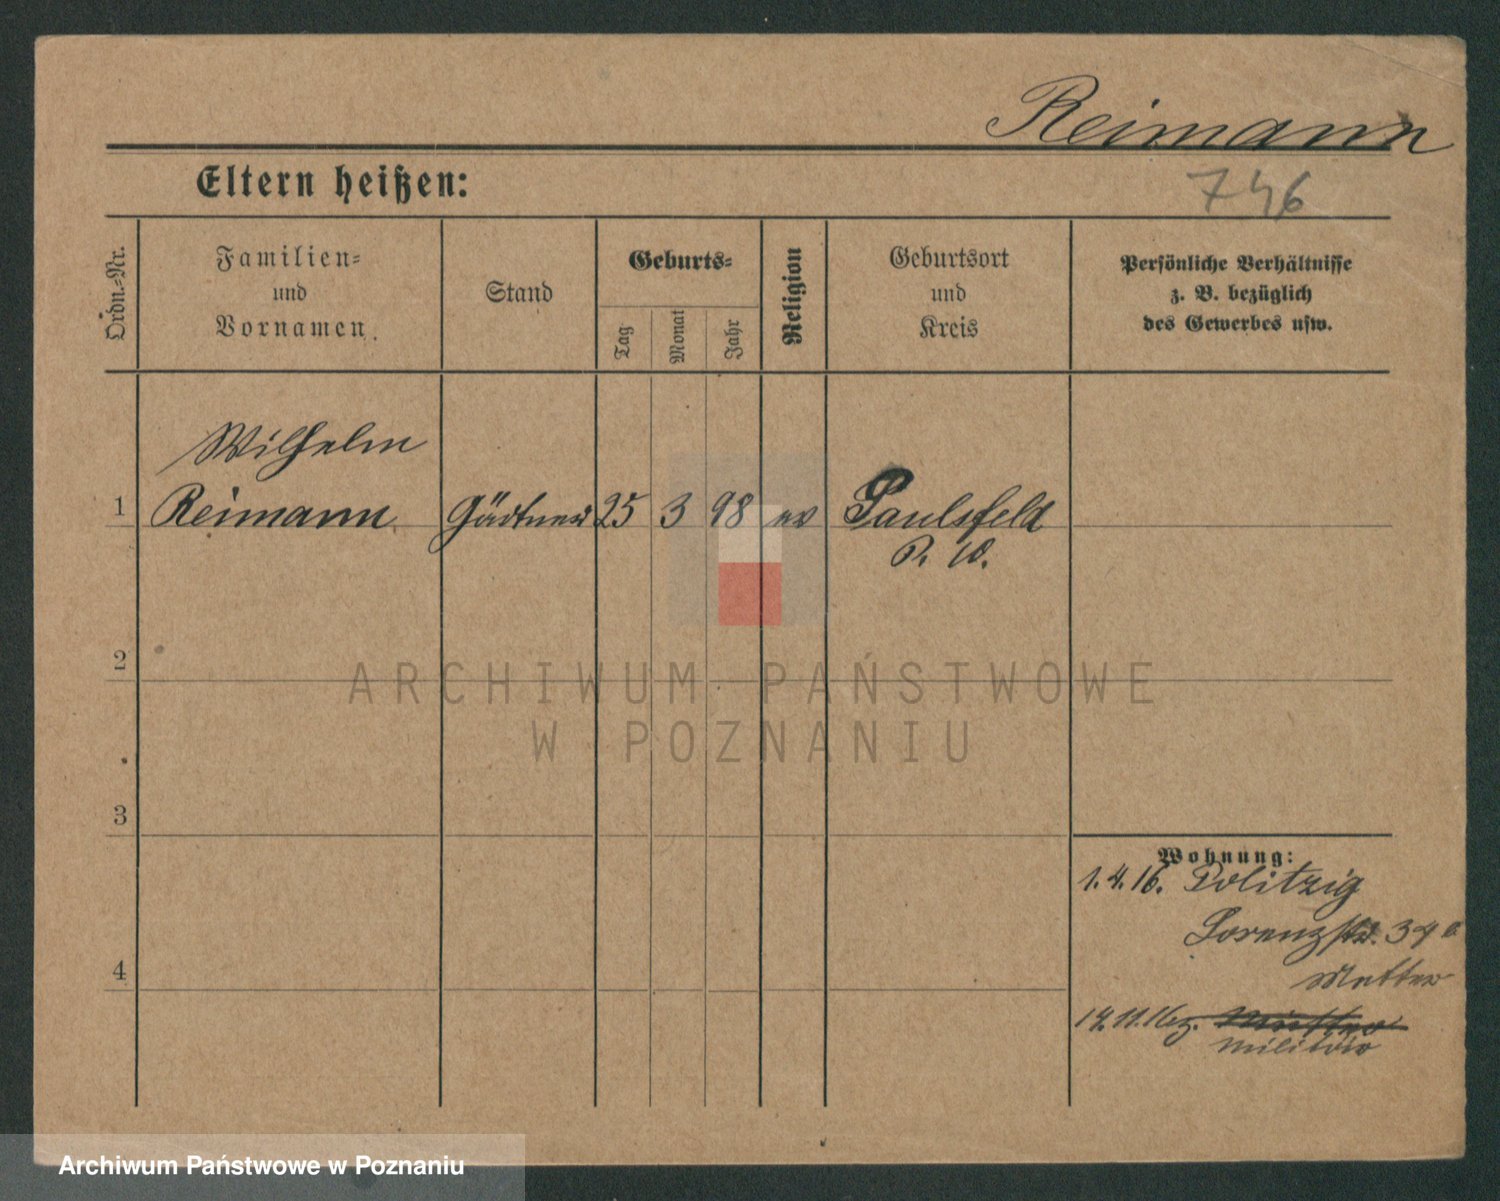 Reimann
746
Eltern heißen:
Ordn.-Nr.
Familien-
und
Vornamen.
Stand
Geburts-
Tag
Monat
Jahr
Religion
Geburtsort
und
Kreis
Persönliche Verhältnisse
z. B. bezüglich
des Gewerbes usw.
Wilhelm
1 Reimann Gärtner 25 3 98 ev Paulsfeld
P. W.
2
ARCHIWUM PAŃSTWOWE
W POZNANIU
3
Wohnung:
1.4.16. Politzig
Lorenzstr.
Mutter
4
Mutter
militär
Archiwum Państwowe w Poznaniu